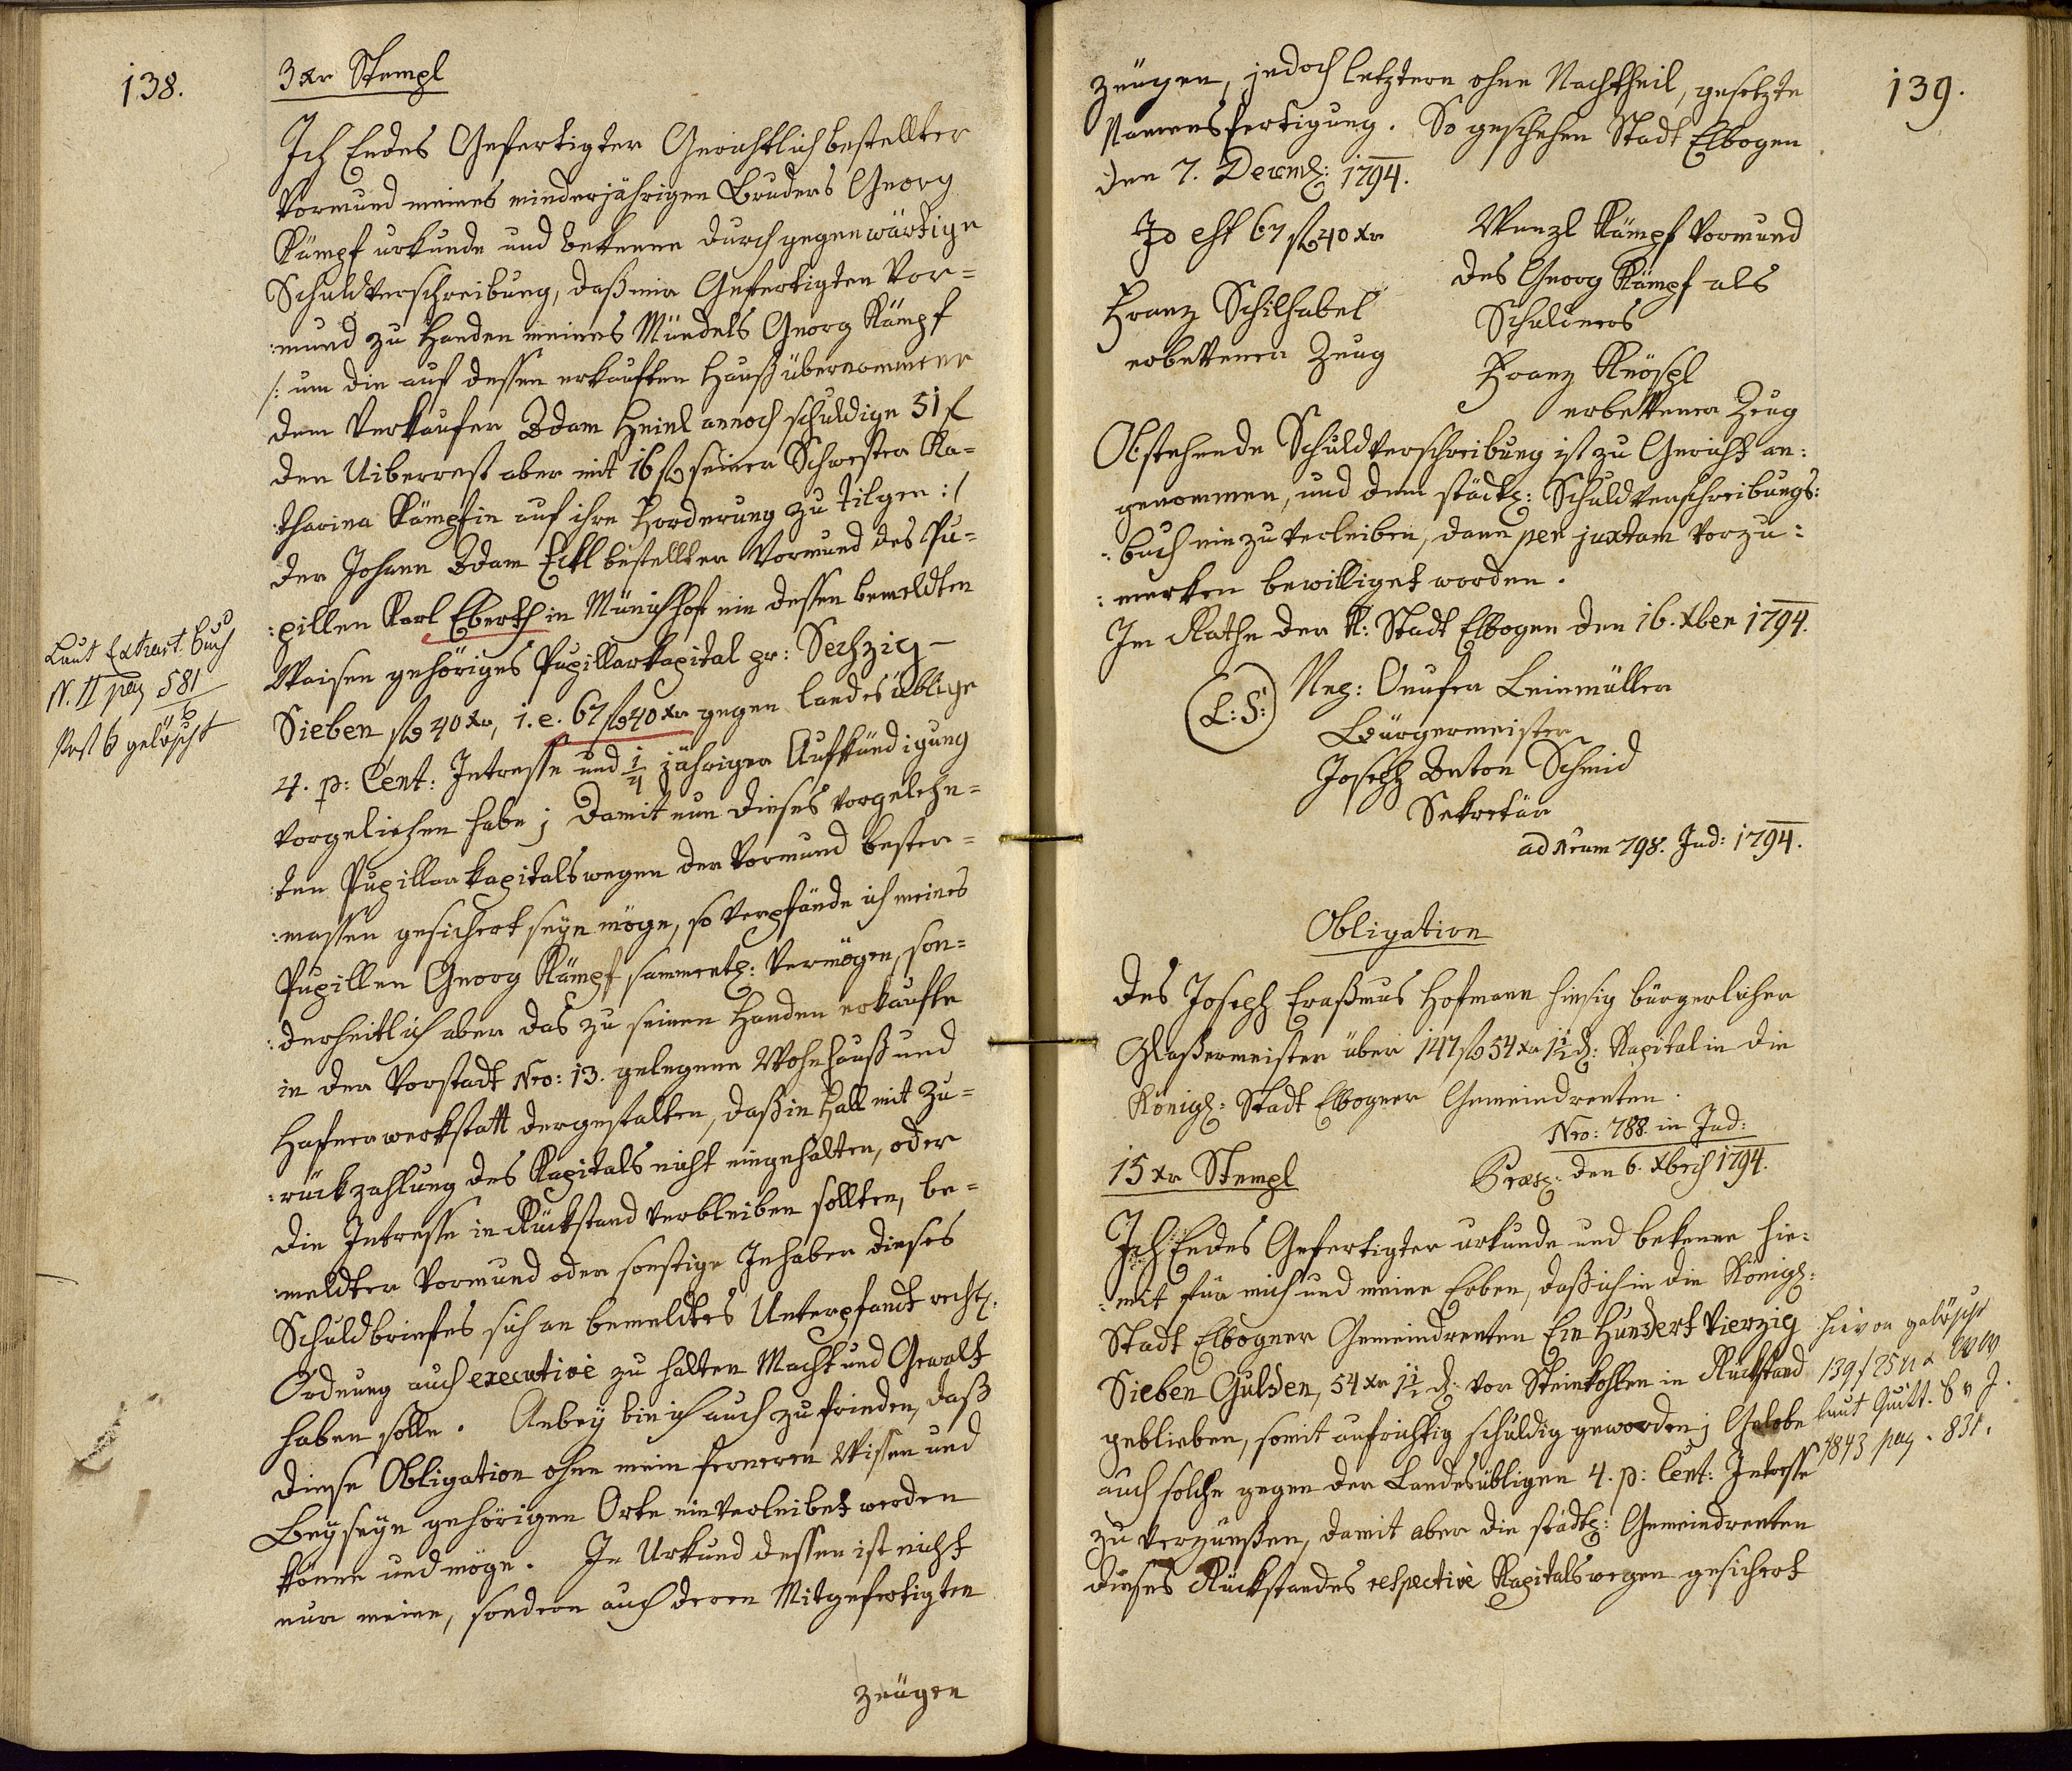 138.
3 xr Stempl
Ich Endes Gefertigter Gerichtlich bestellter
Vormund meines minderjährigen Bruders Georg
Kämpf urkunde und bekenne durch gegenwärtige
Schuldverschreibung, daß mir Gefertigten Vor=
:mund zu Handen meines Mündels Georg Kämpf
/: um die auf dessen erkauften Hauß übernommene
dem Verkaufer Adam Heinl annoch schuldige 51 f
den Uiberrest aber mit 16 f seiner Schwester Ka=
:tharina Kämpfin auf ihre Forderung zu tilgen :/
der Johann Adam Eckl bestellter Vormund des Pu=
:pillen Karl Eberth in Münichhof ein dessen bemeldten
Waisen gehöriges Pupillarkapital pr: Sechzig –
Sieben f 40 xr, i. e. 67 f 40 xr gegen landesüblige
4. p: Cent: Intresse und 1/4 jähriger Aufkündigung
vorgeliehen habe; Damit nun dieses vorgelehn=
:ten Pupillarkapitals wegen der Vormund besten=
:massen gesichert seyn möge, so verpfände ich meines
Pupillen Georg Kämpf sammentl: Vermögen, son=
:derheitlich aber das zu seinen Handen erkaufte
in der Vorstadt Nro: 13. gelegene Wohnhauß und
Hafnerwerkstatt dergestalten, daß in Fall mit Zu=
:rückzahlung des Kapitals nicht eingehalten, oder
die Intresse in Rückstand verbleiben sollten, be=
:meldter Vormund oder sonstige Inhaber dieses
Schuldbriefes sich an bemeldtes Unterpfandt rechtl:
Ordnung auch executive zu halten Macht und Gewalt
haben solle. Anbey bin ich auch zufrieden, daß
diese Obligation ohne mein ferneren Wissen und
Beyseyn gehörigen Orts einverleibet werden
könne und möge. In Urkund dessen ist nicht
nur meine, sondern auch deren Mitgefertigten
zeugen
Laut Extract. Buch
N. II pag 581
6
Post 6 gelöscht
139.
zeugen, jedoch letztern ohne Nachtheil, gesetzte
Namensfertigung. So geschehen Stadt Elbogen
den 7. Decemb: 1794.
Id est 67 f 40 xr
Wenzl Kämpf Vormund
des Georg Kämpf als
Schuldners
Franz Schilhabel
erbettener Zeug
Franz Knöspl
erbettener Zeug
Obstehende Schuldverschreibung ist zu Gericht an:
genommen, und dem städtl: Schuldverschreibungs:
:buch einzuverleiben, dann per juxtam vorzu:
:merken bewilliget worden.
Im Rathe der K: Stadt Elbogen den 16. Xber 1794.
L: S:
Nep: Onufer Leinmüller
Bürgermeister
Joseph Anton Schmid
Sekretär
ad Nrum 798. Jud: 1794.
Obligation
des Joseph Eraßmus Hofmann hiesig bürgerlicher
Glaßermeister über 147 f 54 xr 1 1/2 d: Kapital in die
Königl: Stadt Elbogner Gemeindrenten.
Nro: 788. in Jud:
15 xr Stempl
Præs: den 6. Xbris 1794.
Ich Endes Gefertigter urkunde und bekenne hie:
:mit für mich und meine Erben, daß ich in die Königl:
Stadt Elbogner Gemeindrenten Ein Hundert Vierzig
Sieben Gulden, 54 xr 1 1/2 d: vor Steinkohlen in Rückstand
geblieben, somit aufrichtig schuldig geworden; Gelobe
auch solche gegen den Landesübligen 4. p: Cent: Intresse
zu verzünßen, damit aber die städtl: Gemeindrenten
dieses Rückstandes respective Kapitals wegen gesichert
hievon gelöscht
139 f 25 xr WW
laut Quitt. B v J.
1843 pag. 831.